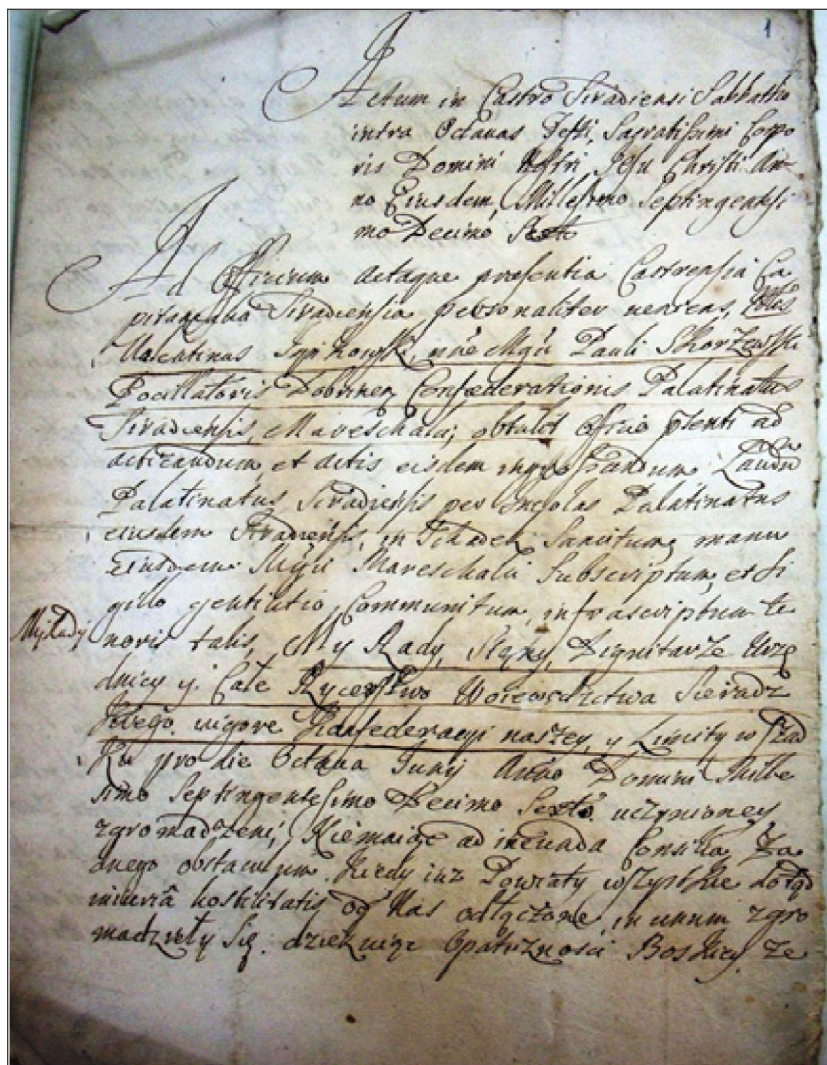 1
Actum in Castro Siradiensi Sabbatho
intra Octavas Festi, Sacratissimi Corpo
ris Domini Nostri, Jesu Christi An-
no Eiusdem, Millesimo Septingentesi
mo Decimo Sexto
Ad Officium Actaque presentia Castrensia Ca
pitanealia Siradiensia personaliter veniens,
Valentinus Pauli Skorzewski
Pocillatoris Dobrinen, Confæderationis Palatinatus
Siradiensis, Mareschalci, obtulit Officio ad
acticandum, et Actis eisdem Laudu
Palatinatus Siradiensis per Incolas Palatinatus
eiusdem Siradiensis, in Schadek Sancitum, manu
Eiusdem Mareschalci Subscriptum, et Si
gillo gentilitio Communitum, infrascriptum te
My Rady
noris talis, My Rady, Dignitarze Urzę
dnicy y Całe Rycerstwo Woiewodztwa Sieradz
kiego, vigore Konfederacyi naszey, y Limity w Szad
ku pro die Octava Junij Anno Domini Mille
simo Septingentesimo Decimo Sexto uczynioney
zgromadzeni, Niemaiąc ad ineunda Consilia Ża
dnego obstaculum. kiedy iuz Powiaty wszystkie dotąd
iniuria hostilitatis od Nas odłączone, in unum zgro
madzieły Się. dziękuiąc Opatrznosci Boskiey, ze